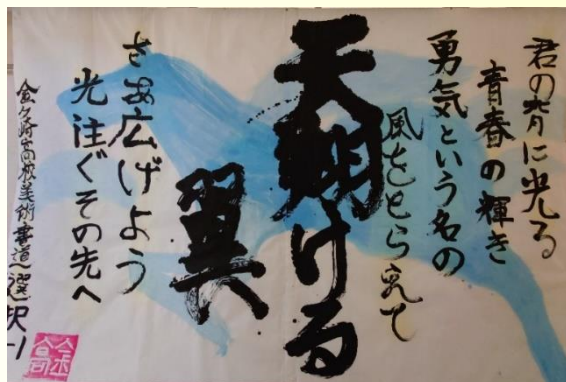 君の背に光る
青春の輝き
勇気という名の
風をとらえて
天翔ける
翼
さあ広げよう
光注ぐその先へ
金ヶ崎高校美術書道選択-1
金高